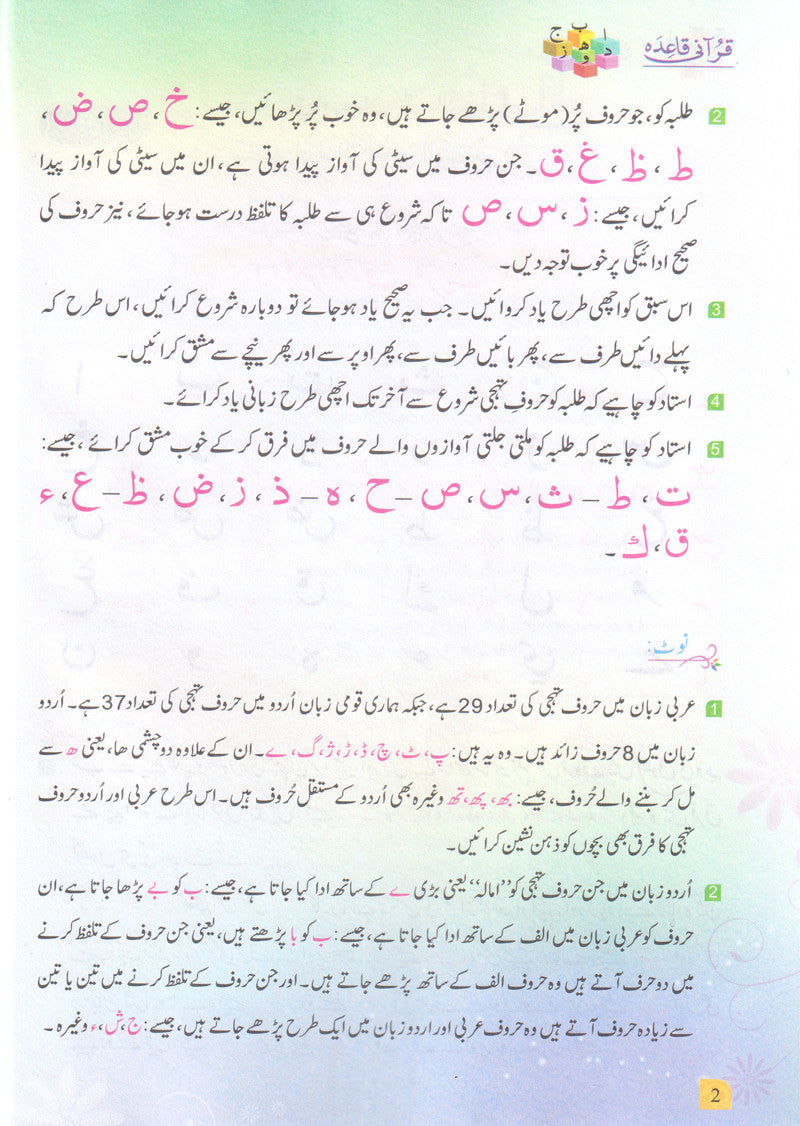 قرآنی قاعدہ
ا ب ج د ھ و ز
2 طلبہ کو، جو حروف پُر (موٹے) پڑھے جاتے ہیں، وہ خوب پُر پڑھائیں، جیسے: خ، ص، ض،
ط، ظ، غ، ق۔ جن حروف میں سیٹی کی آواز پیدا ہوتی ہے، ان میں سیٹی کی آواز پیدا
کرائیں، جیسے: ز، س، ص تاکہ شروع ہی سے طلبہ کا تلفظ درست ہوجائے، نیز حروف کی
صحیح ادائیگی پر خوب توجہ دیں۔
3 اس سبق کو اچھی طرح یاد کروائیں۔ جب یہ صحیح یاد ہوجائے تو دوبارہ شروع کرائیں، اس طرح کہ
پہلے دائیں طرف سے، پھر بائیں طرف سے، پھر اوپر سے اور پھر نیچے سے مشق کرائیں۔
4 استاد کو چاہیے کہ طلبہ کو حروفِ تہجی شروع سے آخر تک اچھی طرح زبانی یاد کرائے۔
5 استاد کو چاہیے کہ طلبہ کو ملتی جلتی آوازوں والے حروف میں فرق کرکے خوب مشق کرائے، جیسے:
ت، ط – ث، س، ص – ح، ہ – ذ، ز، ض، ظ – ع، ء
ق، ك۔
نوٹ:
1 عربی زبان میں حروف تہجی کی تعداد 29 ہے، جبکہ ہماری قومی زبان اُردو میں حروف تہجی کی تعداد 37 ہے۔ اُردو
زبان میں 8 حروف زائد ہیں۔ وہ یہ ہیں: پ، ٹ، چ، ڈ، ڑ، ژ، گ، ے۔ ان کے علاوہ دو چشمی ھا، یعنی ھ سے
مل کر بننے والے حُروف، جیسے: بھ، پھ، تھ وغیرہ بھی اُردو کے مستقل حُروف ہیں۔ اس طرح عربی اور اُردو حروف
تہجی کا فرق بھی بچوں کو ذہن نشین کرائیں۔
2 اُردو زبان میں جن حروف تہجی کو ”امالہ“ یعنی بڑی ے کے ساتھ ادا کیا جاتا ہے، جیسے: ب کو بے پڑھا جاتا ہے، ان
حروف کو عربی زبان میں الف کے ساتھ ادا کیا جاتا ہے، جیسے: ب کو با پڑھتے ہیں، یعنی جن حروف کے تلفظ کرنے
میں دو حرف آتے ہیں وہ حروف الف کے ساتھ پڑھے جاتے ہیں۔ اور جن حروف کے تلفظ کرنے میں تین یا تین
سے زیادہ حروف آتے ہیں وہ حروف عربی اور اردو زبان میں ایک طرح پڑھے جاتے ہیں، جیسے: ج، ش، ء وغیرہ۔
2